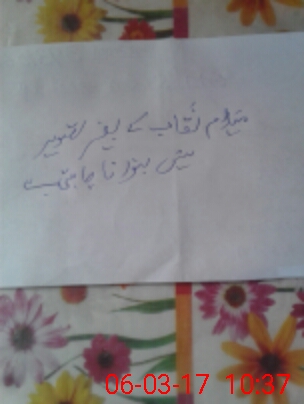 میڈم نقاب کے بغیر تصویر
نہیں بنوانا چاہتی ہے
06-03-17 10:37